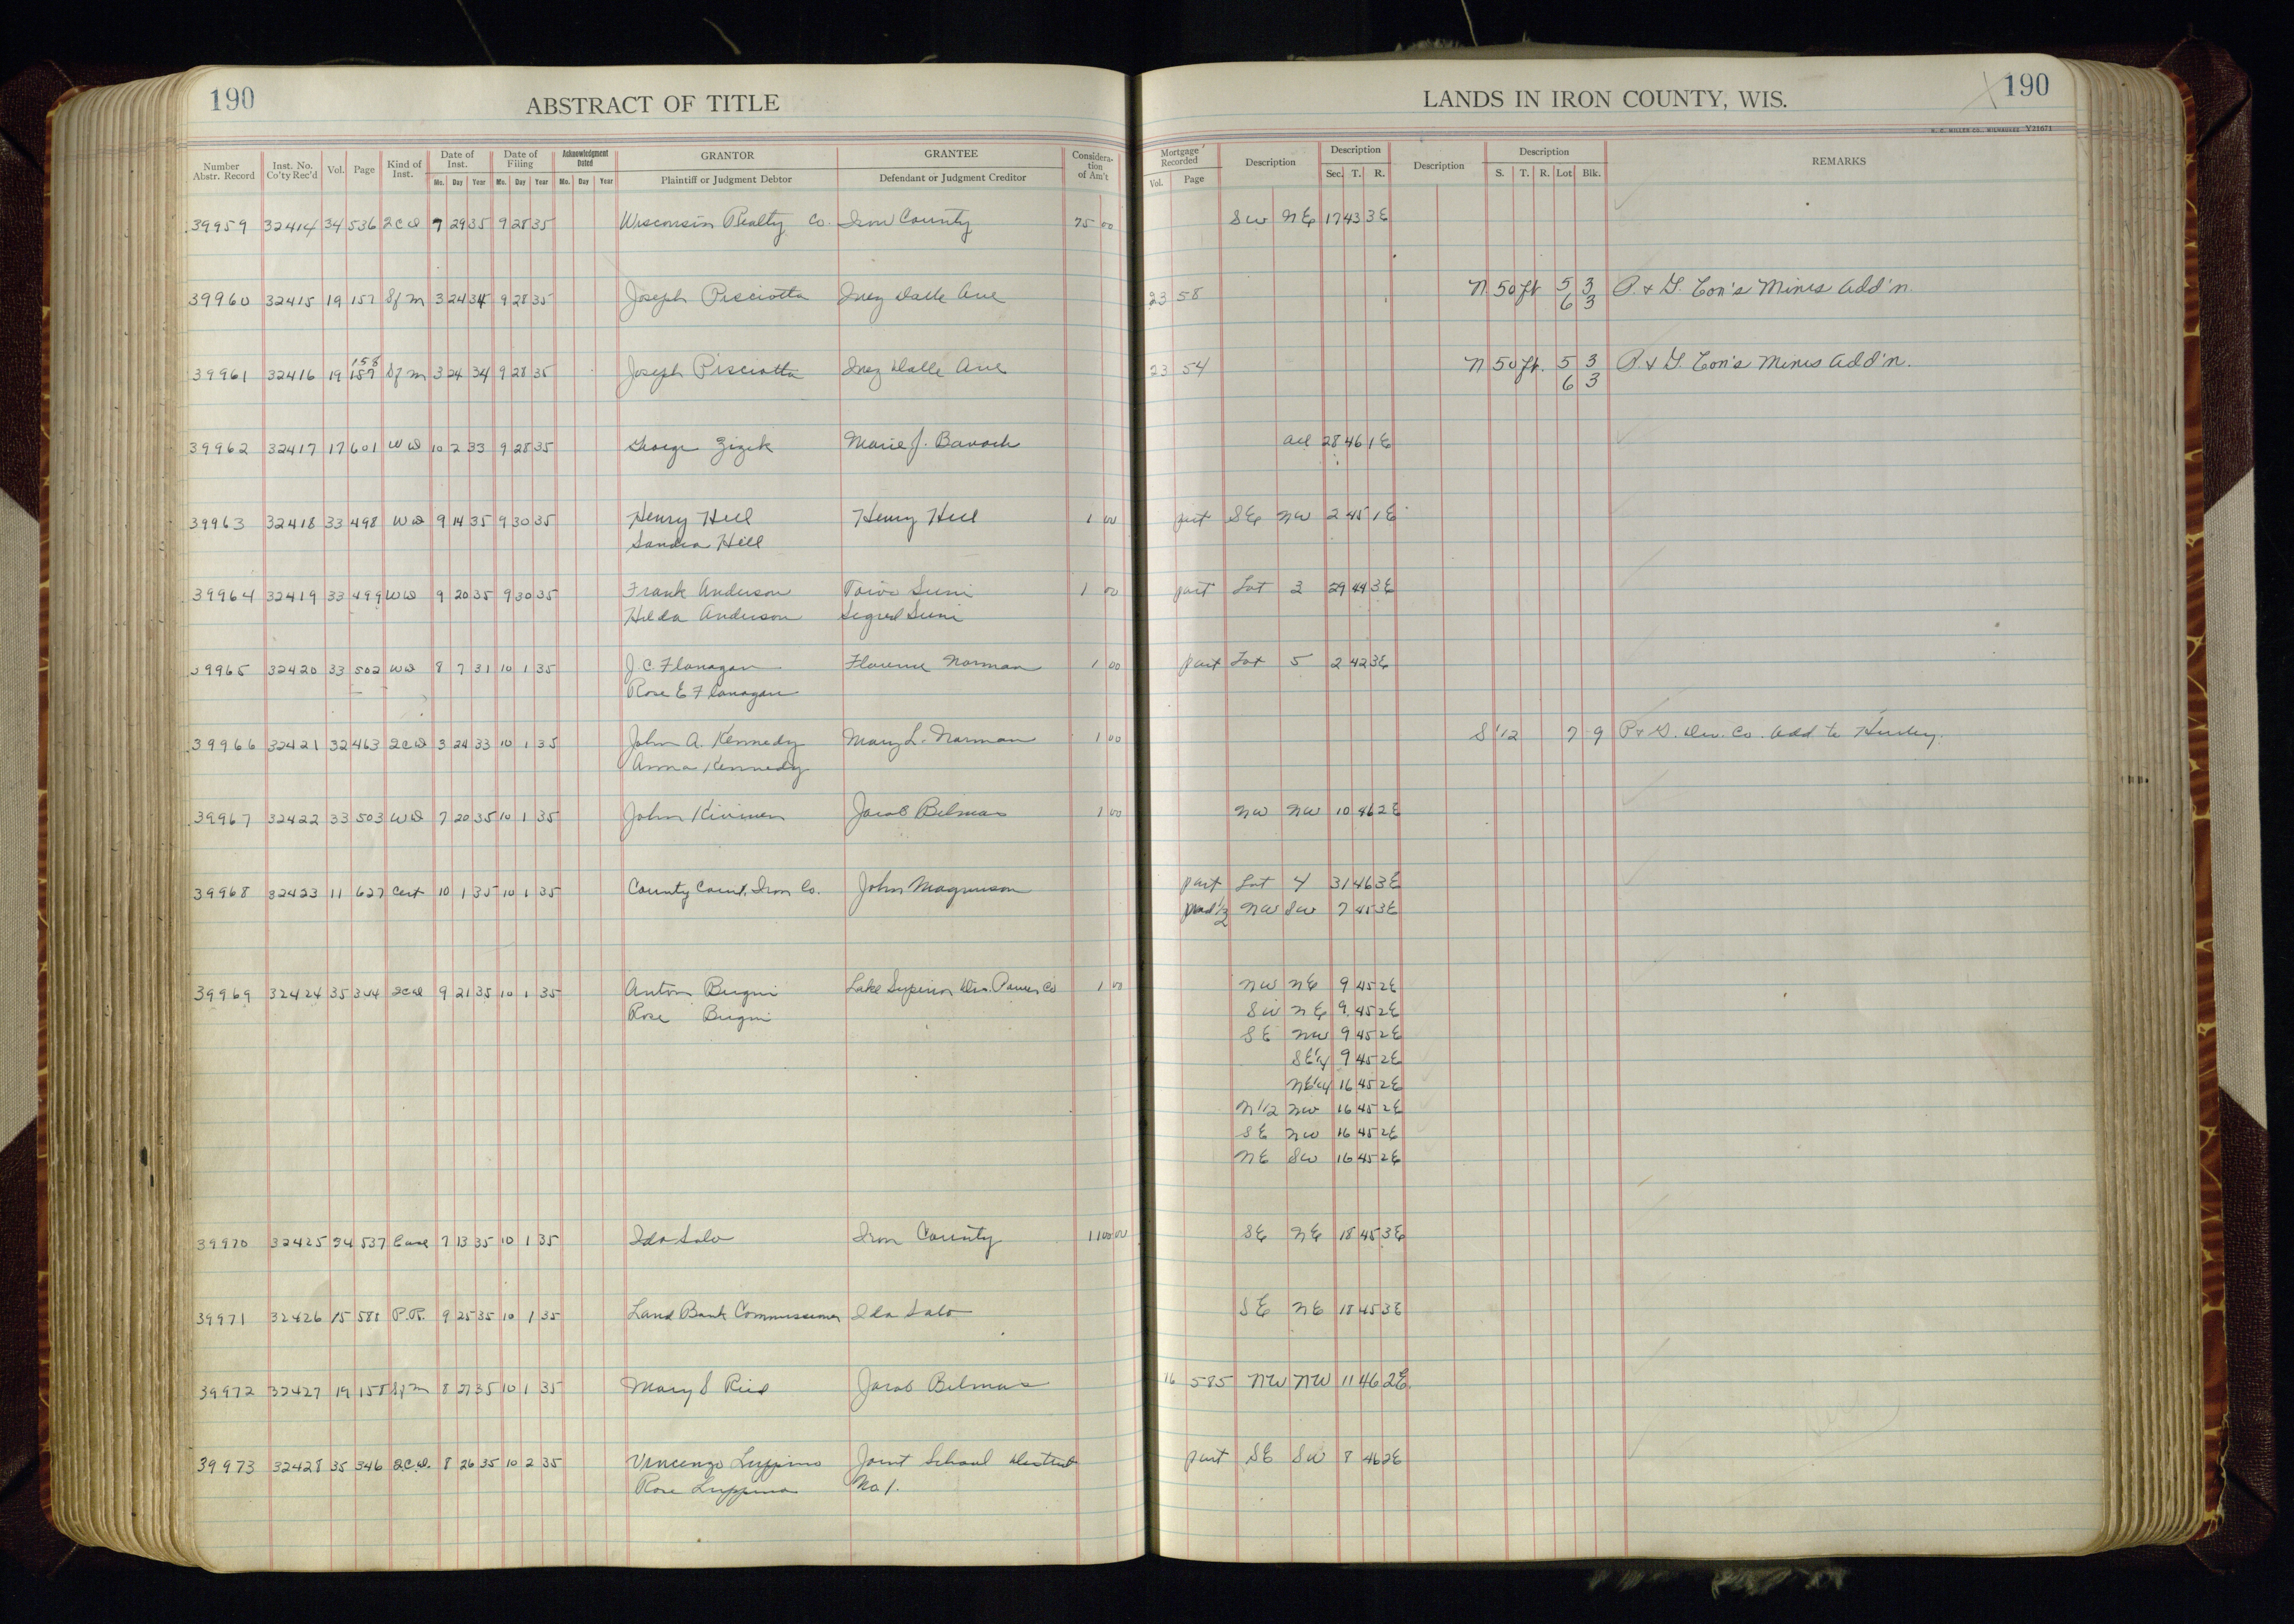 190
ABSTRACT OF TITLE
LANDS IN IRON COUNTY, WIS.
190
Number Abstr. Record Inst. No. Co'ty Rec'd Vol. Page Kind of Inst. Date of Inst. Mo. Day Year Date of Filing Mo. Day Year Acknowledgment Dated Mo. Day Year GRANTOR Plaintiff or Judgment Debtor GRANTEE Defendant or Judgment Creditor Considera-tion of Am't Mortgage Recorded Vol. Page Description Description Sec. T. R. Description Description S. T. R. Lot Blk. REMARKS
39959 32414 34 536 2CD 9 28 35 Wisconsin Realty Co. Iron County 75 00 SW NE 17 43 3E
39960 32415 19 157 Sfm 3 24 34 9 28 35 Joseph Pisciotta Inez Dalle Ave 23 58 N 50 ft 5 3 P. & G. Con's Mines Add'n.
6 3
158
39961 32416 19 157 Sfm 3 24 34 9 28 35 Joseph Pisciotta Inez Dalle Ave 23 54 N 50 ft. 5 3 P. & G. Con's Mines Add'n.
6 3
39962 32417 17 601 WD 10 2 33 9 28 35 George Zizik Marie J. all 28 46 1E
39963 32418 33 498 WD 9 14 35 9 30 35 Henry Hill Henry Hill 1 00 part SE NW 2 45 1E
Sandra Hill
39964 32419 33 499 WD 9 20 35 9 30 35 Frank Anderson Toivo Suni 1 00 part Lot 3 29 44 3E
Hilda Anderson Sigrid Suni
39965 32420 33 502 WD 8 7 31 10 1 35 J. C. Flanagan Florence Norman 1 00 part Lot 5 2 42 3E
Rose E Flanagan
39966 32421 32 463 2CD 3 24 33 10 1 35 John A. Kennedy Mary L. Norman 1 00 S 1/2 7 9 P & G. Dev. Co. Add to Hurley.
Anna Kennedy
39967 32422 33 503 WD 7 20 35 10 1 35 John Kivinen Jacob Belmas 1 00 NW NW 10 46 2E
39968 32423 11 627 Cert 10 1 35 10 1 35 County Court, Iron Co. John Magnuson part Lot 4 31 46 3E
1/2 NW SW 7 45 3E
39969 32424 35 344 2CD 9 21 35 10 1 35 Anton Bugni Lake Superior Dis. Power Co 1 00 NW NE 9 45 2E
Rose Bugni SW NE 9 45 2E
SE NW 9 45 2E
SE 1/4 9 45 2E
NE 1/4 16 45 2E
N 1/2 NW 16 45 2E
SE NW 16 45 2E
NE SW 16 45 2E
39970 32425 34 537 Ease 7 13 35 10 1 35 Ida Salo Iron County 1100 00 SE NE 18 45 3E
39971 32426 15 588 P.R. 9 25 35 10 1 35 Land Bank Commissioner Ida Salo SE NE 18 45 3E
39972 32427 19 158 Sfm 8 27 35 10 1 35 Mary S Ried Jacob Belmas 16 585 NW NW 11 46 2E
39973 32428 35 346 2C.D. 8 26 35 10 2 35 Vincenzo Luppino Joint School District part SE SW 8 46 2E
Rose Luppino No 1.